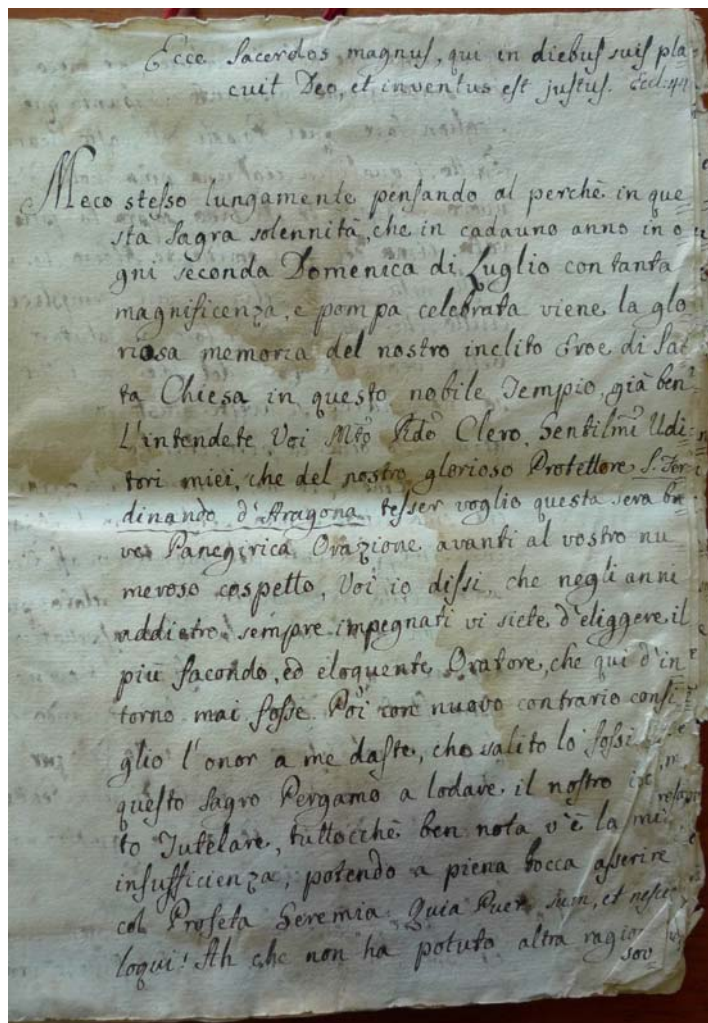 Ecce Sacerdos magnus, qui in diebus suis pla
cuit Deo, et inventus est justus. Eccl: 44
Meco stesso lungamente pensando al perchè in que
sta Sagra solennità, che in cadauno anno in o
gni seconda Domenica di Luglio con tanta
magnificenza, e pompa celebrata viene la glo
riosa memoria del nostro inclito Eroe di San
ta Chiesa in questo nobile Tempio, già ben
L'intendete Voi Mtõ Rdõ Clero, Gentilm̃i Udi
tori miei, che del nostro glorioso Protettore S. Fer
dinando d'Aragona tesser voglio questa sera bre
ve Panegirica Orazione avanti al vostro nu
meroso cospetto, Voi io dissi, che negli anni
addietro sempre impegnati vi siete d'eliggere il
più facondo, ed eloquente Oratore, che qui d'in
torno mai fosse. Poi con nuovo contrario consi
glio l'onor a me daste, che salito lo fossi
questo Sagro Pergamo a lodare il nostro
to Tutelare, tuttocchè ben nota v'è la mi
insufficienza, potendo a piena bocca asserire
col Profeta Geremia Quia Puer sum, et nesci
loqui! Ah che non ha potuto altra ragio
sov